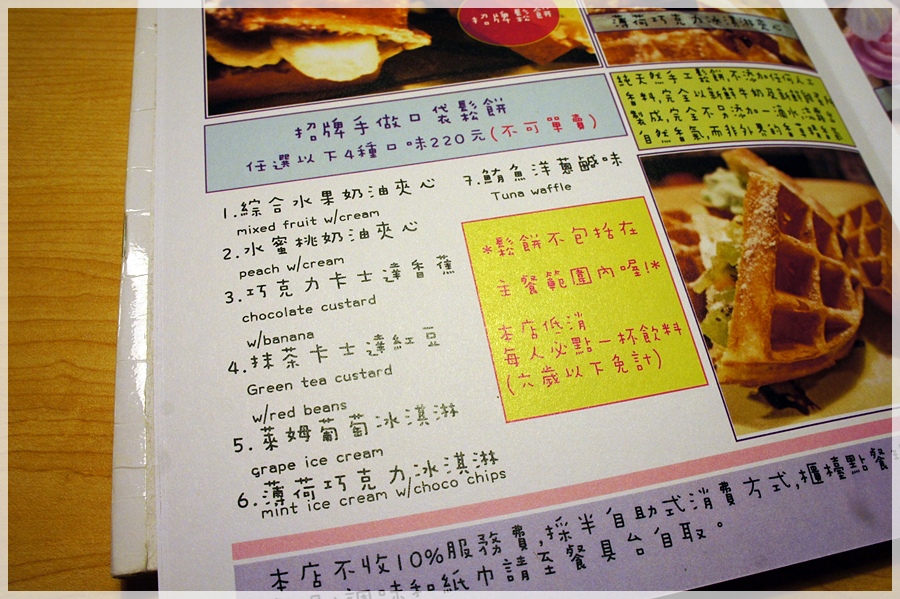 招牌鬆餅
薄荷巧克力冰淇淋夾心
純天然手工鬆餅,不添加任何人工
香料,完全以新鮮牛奶及新鮮雞蛋
製成,完全不另添加一滴水,
自然香氣,而非外界的
招牌手做口袋鬆餅
任選以下4種口味220元(不可單賣)
1.綜合水果奶油夾心
mixed fruit w/cream
2.水蜜桃奶油夾心
peach w/cream
3.巧克力卡士達香蕉
chocolate custard
w/banana
4.抹茶卡士達紅豆
Green tea custard
w/red beans
5.萊姆葡萄冰淇淋
grape ice cream
6.薄荷巧克力冰淇淋
mint ice cream w/choco chips
7.鮪魚洋蔥鹹味
Tuna waffle
*鬆餅不包括在
主餐範圍內喔!*
本店低消
每人必點一杯飲料
(六歲以下免計)
本店不收10%服務費,採半自助式消費方式,櫃檯點餐
調味和紙巾請至餐具台自取。